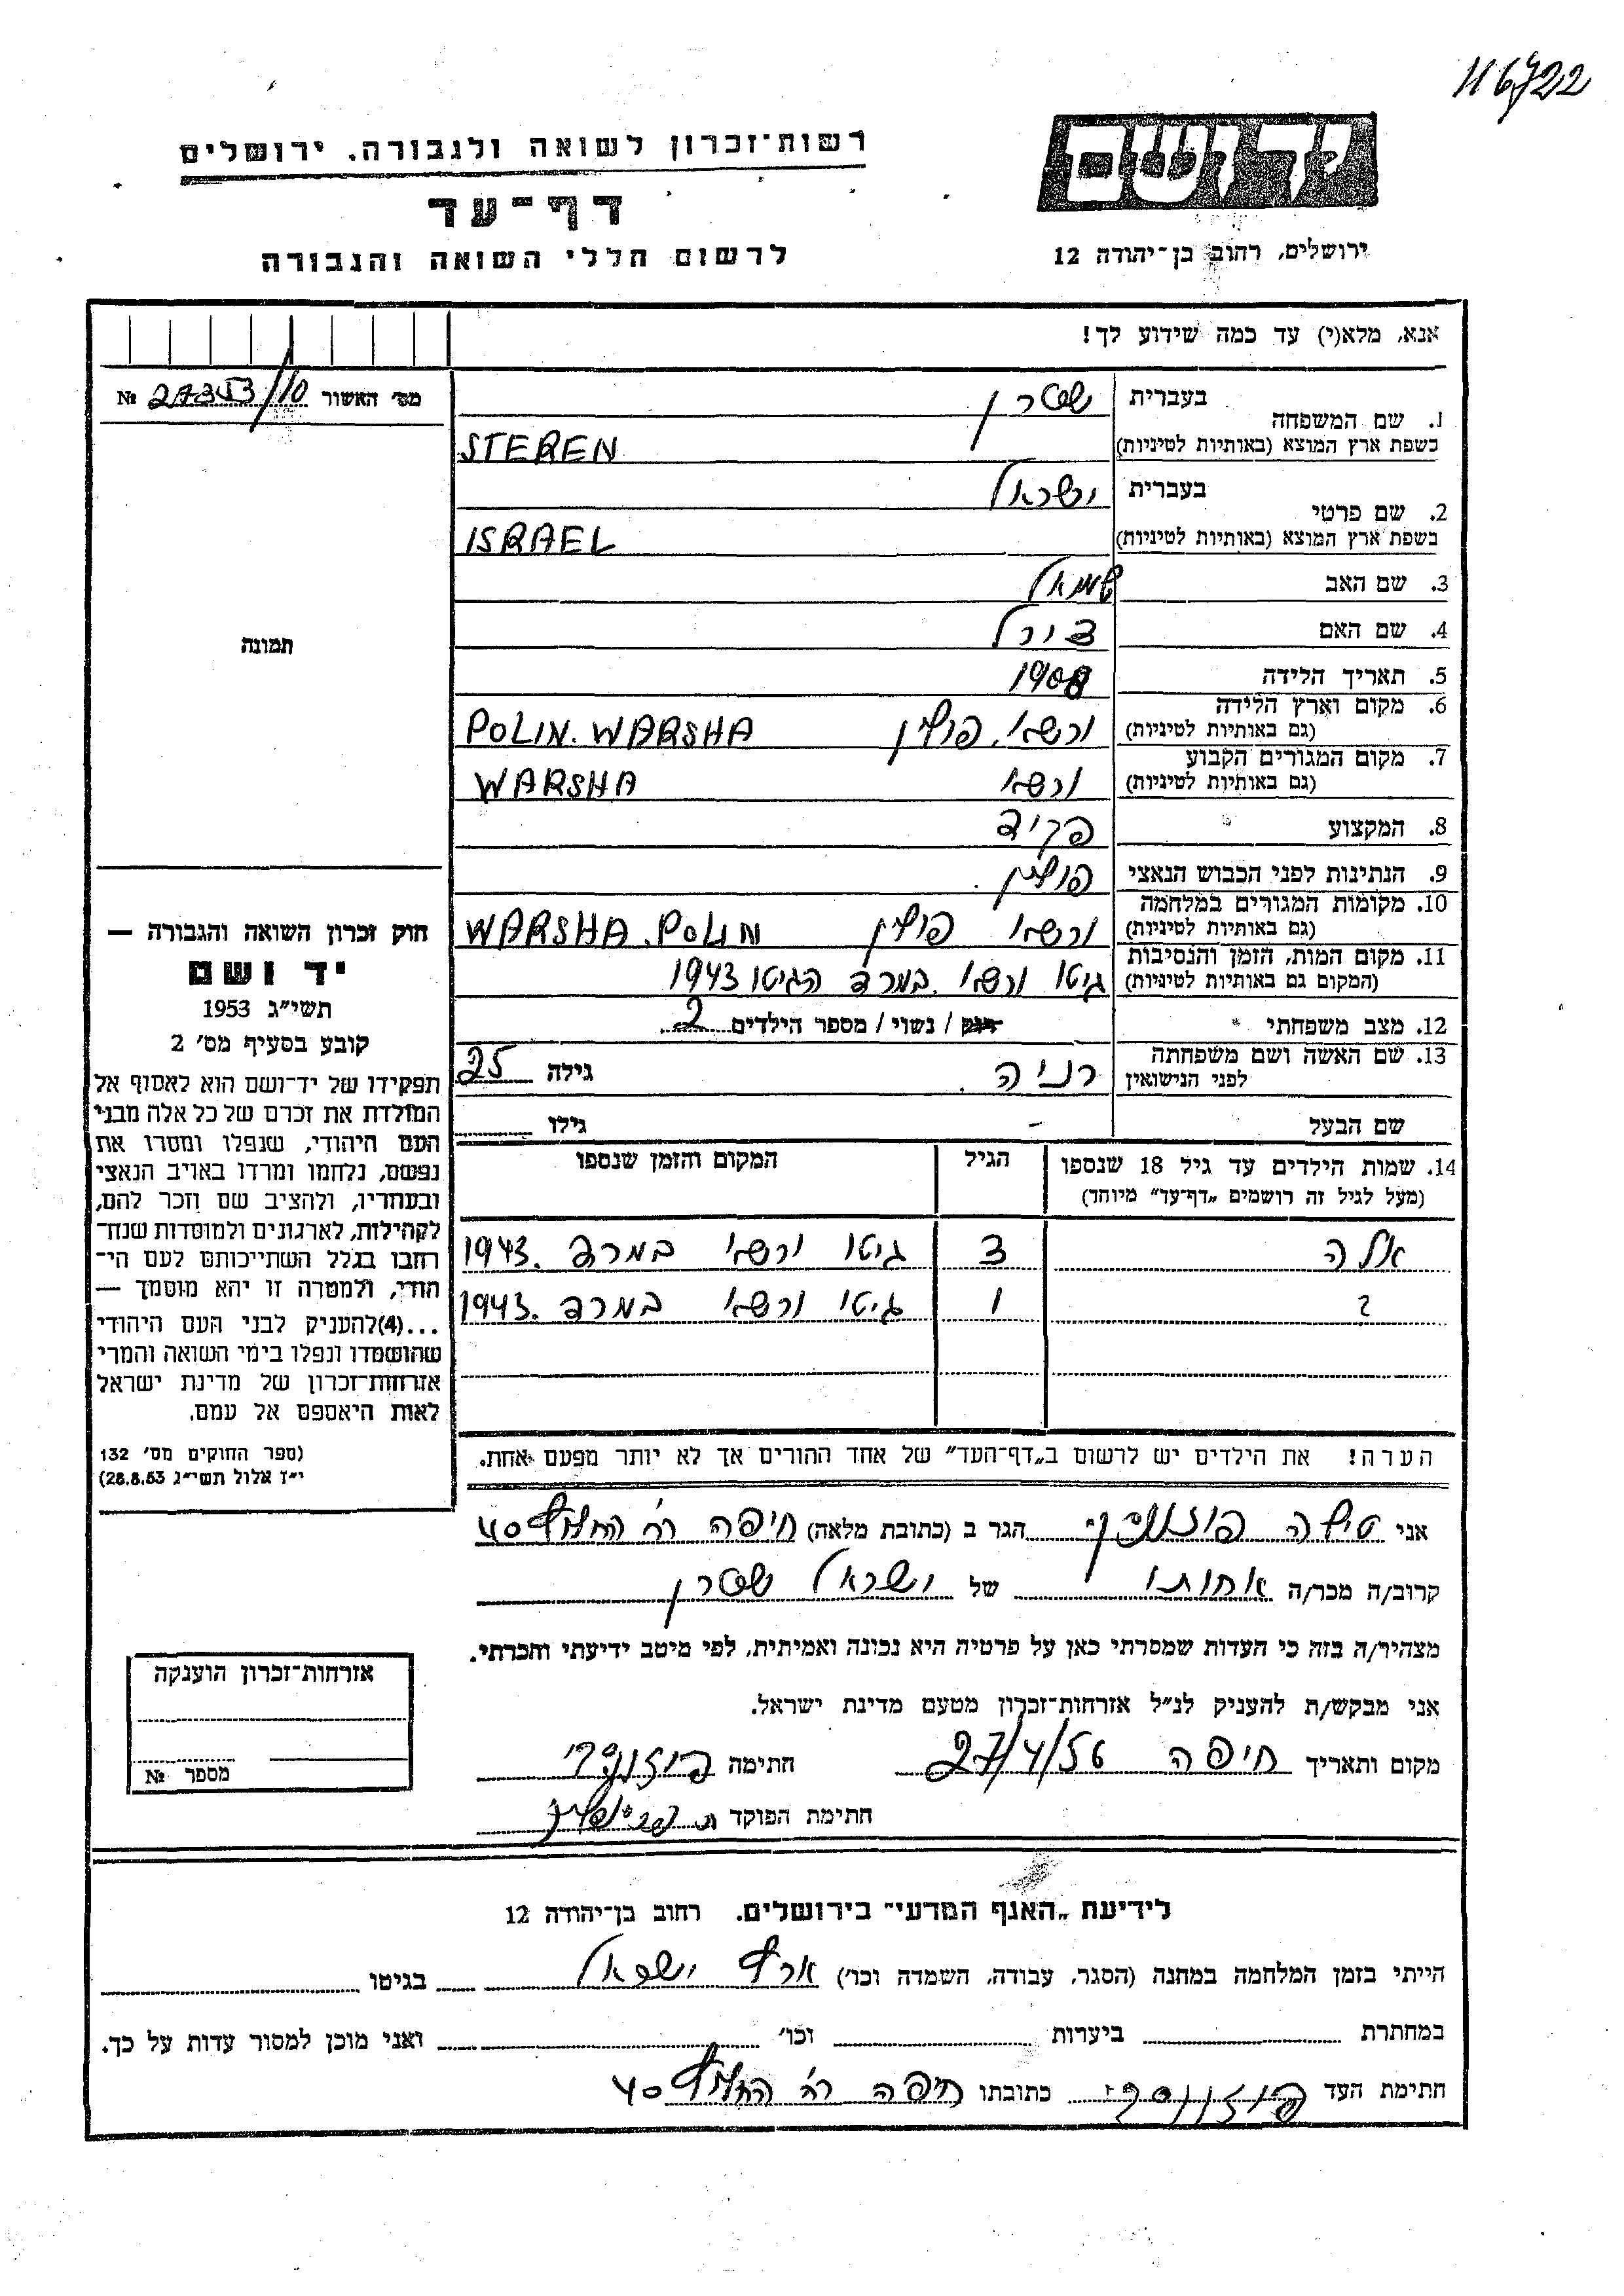 116722
יד ושם
רשות־זכרון לשואה ולגבורה. ירושלים
דף־עד
ירושלים, רחוב בן־יהודה 12
לרשום חללי השואה והגבורה
אנא, מלא(י) עד כמה שידוע לך!
מס׳ האשור 27353/10 №
תמונה
1. שם המשפחה
בעברית שטרן
בשפת ארץ המוצא (באותיות לטיניות) STEREN
2. שם פרטי
בעברית ישראל
בשפת ארץ המוצא (באותיות לטיניות) ISRAEL
3. שם האב שמואל
4. שם האם
5. תאריך הלידה 1908
6. מקום וארץ הלידה
(גם באותיות לטיניות) ורשא. פולין POLIN. WARSHA
7. מקום המגורים הקבוע
(גם באותיות לטיניות) ורשא WARSHA
8. המקצוע פקיד
9. הנתינות לפני הכבוש הנאצי פולין.
10. מקומות המגורים במלחמה
(גם באותיות לטיניות) ורשא פולין WARSHA. POLIN
11. מקום המות, הזמן והנסיבות
(המקום גם באותיות לטיניות) גיטו ורשא. במרד הגיטו 1943
12. מצב משפחתי רווק / נשוי / מספר הילדים 2
13. שם האשה ושם משפחתה
לפני הנישואין רניה. גילה 25
שם הבעל - גילו
14. שמות הילדים עד גיל 18 שנספו הגיל המקום והזמן שנספו
(מעל לגיל זה רושמים „דף־עד” מיוחד)
אלה 3 גיטו ורשא במרד 1943.
? 1 גיטו ורשא במרד 1943.
הערה! את הילדים יש לרשום ב„דף־העד” של אחד ההורים אך לא יותר מפעם אחת.
חוק זכרון השואה והגבורה —
יד ושם
תשי״ג 1953
קובע בסעיף מס׳ 2
תפקידו של יד־ושם הוא לאסוף אל
המולדת את זכרם של כל אלה מבני
העם היהודי, שנפלו ומסרו את
נפשם, נלחמו ומרדו באויב הנאצי
ובעוזריו, ולהציב שם וזכר להם,
לקהילות, לארגונים ולמוסדות שנח־
רחבו בגלל השתייכותם לעם הי־
הודי, ולמטרה זו יהא מוסמך —
...(4)להעניק לבני העם היהודי
שהושמדו ונפלו בימי השואה והמרי
אזרחות־זכרון של מדינת ישראל
לאות היאספם אל עמם.
(ספר החוקים מס׳ 132
י״ז אלול תשי״ג 28.8.53)
אני הגר ב (כתובת מלאה) חיפה רח׳ החלוץ 40
קרוב/ה מכר/ה אחותו של ישראל שטרן
מצהיר/ה בזה כי העדות שמסרתי כאן על פרטיה היא נכונה ואמיתית, לפי מיטב ידיעתי והכרתי.
אני מבקש/ת להעניק לנ״ל אזרחות־זכרון מטעם מדינת ישראל.
מקום ותאריך חיפה 27/4/56 חתימה
חתימת הפוקד
אזרחות־זכרון הוענקה
מספר №
לידיעת „האגף המדעי” בירושלים. רחוב בן־יהודה 12
הייתי בזמן המלחמה במחנה (הסגר, עבודה, השמדה וכו׳) ארץ ישראל בגיטו
במחתרת ביערות וכו׳ ואני מוכן למסור עדות על כך.
חתימת העד כתובתו חיפה רח׳ החלוץ 40